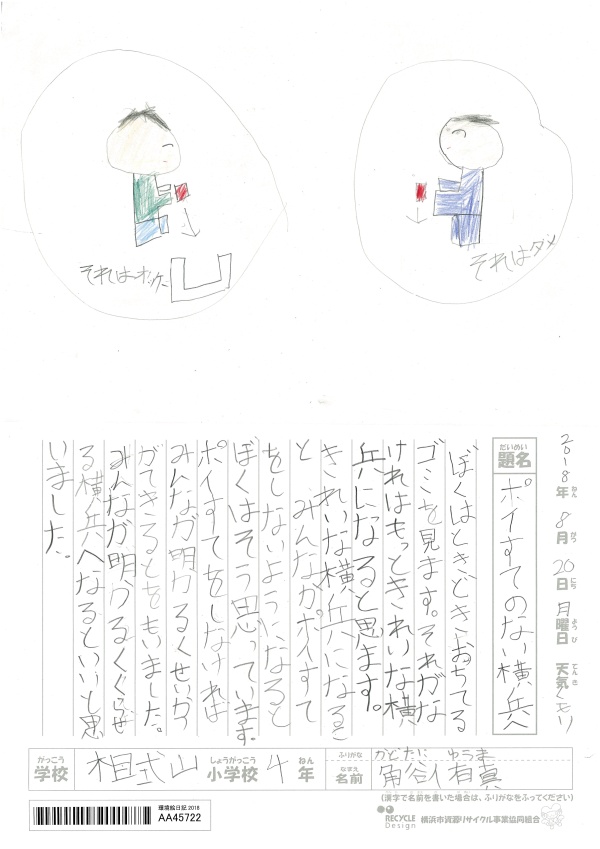 それはオッケー
それはダメ
2018年ねん 8月がつ 20日にち 月曜日ようび 天気てんき くもり
題名だいめい ポイすてのない横兵へ
ぼくはときどきおちてる
ゴミを見ます。それがな
ければもっときれいな横
兵になると思ます。
きれいな横兵になるき
と みんながポイすて
をしないようになると
ぼくはそう思っています。
ポイすてをしなければ
みんなが明かるくせいかつ
ができるとをもいました。
みんなが明かるくぐらせ
る横兵へなるといいと思
いました。
がっこう しょうがっこう ねん ふりがな かどたに ゆうま
学校 相式山 小学校 4 年 なまえ 名前 角谷 有真
(漢字で名前を書いた場合は、ふりがなをふってください)
環境絵日記 2018
AA45722
RECYCLE Design 横浜市資源リサイクル事業協同組合